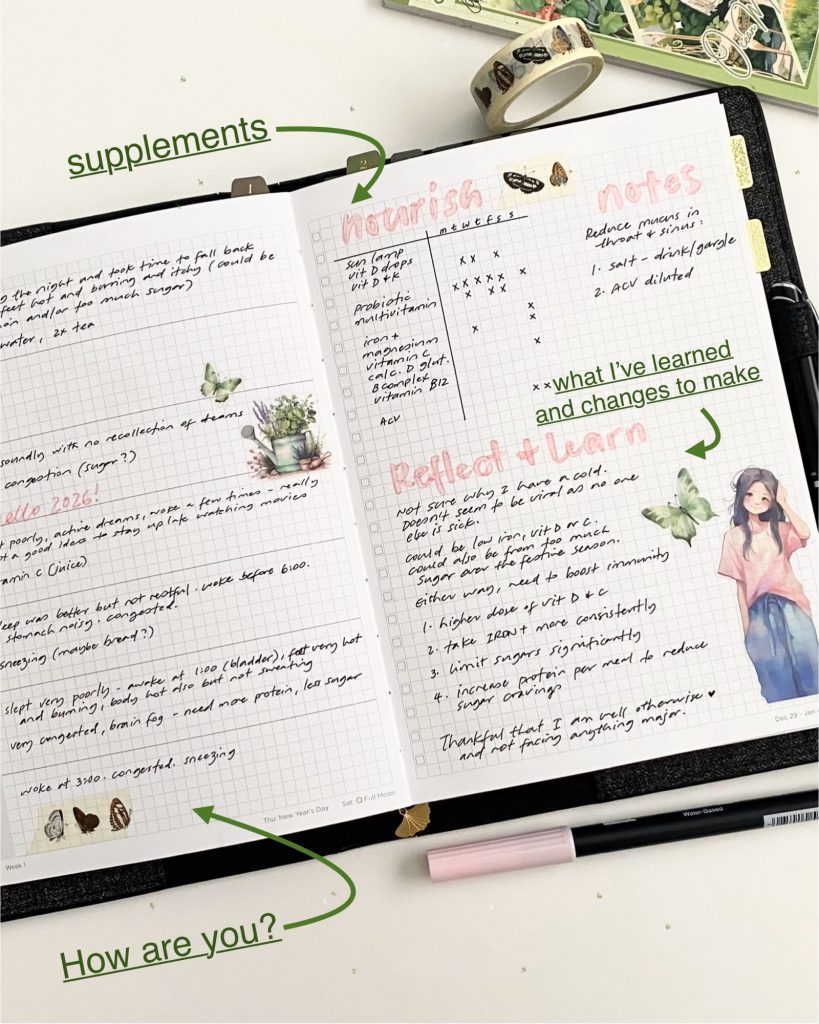 supplements
1
2
nourish
m t w t f s s
sun lamp
vit D drops
vit D & K
probiotic
multivitamin
iron +
magnesium
vitamin C
calc. D glut.
B complex
vitamin B12
ACV
notes
Reduce mucus in
throat & sinus:
1. salt - drink/gargle
2. ACV diluted
what I've learned
and changes to make
Reflect + learn
Not sure why I have a cold.
Doesn't seem to be viral as no one
else is sick.
could be low iron, vit D or C.
could also be from too much
sugar over the festive season.
Either way, need to boost immunity
1. higher dose of vit D & C
2. take IRON + more consistently
3. limit sugars significantly
4. increase protein per meal to reduce
sugar cravings
Thankful that I am well otherwise ♥
and not facing anything major.
Dec 29 - Jan
the night and took time to fall back
feet hot and burning and itchy (could be
and/or too much sugar)
water, 2x tea
soundly with no recollection of dreams
congestion (sugar?)
hello 2026!
poorly, active dreams, woke a few times - really
a good idea to stay up late watching movies
(juice)
sleep was better but not restful. woke before 6:00.
stomach noisy. congested.
sneezing (maybe bread?)
slept very poorly - awake at 1:00 (bladder), feet very hot
and burning, body hot also but not sweating
very congested, brain fog - need more protein, less sugar
woke at 3:00. congested. sneezing
Thu: New Year's Day Sat: Full Moon
Week 1
Water-Based
How are you?